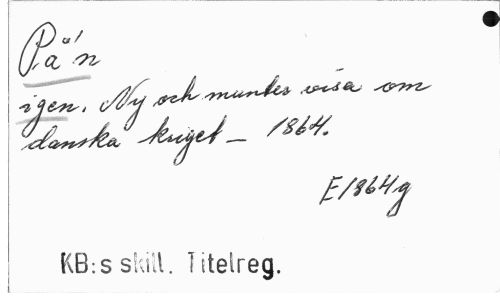 På'n
igen. Ny och munter visa om
danska kriget – 1864.
E1864g
KB:s skill. Titelreg.